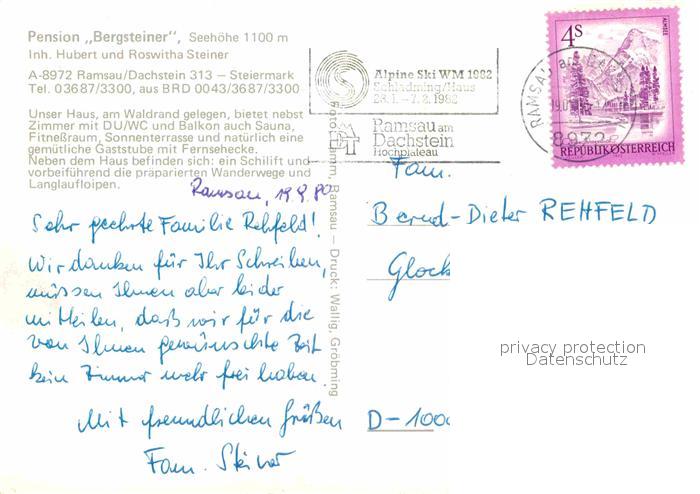 Pension „Bergsteiner“, Seehöhe 1100 m
Inh. Hubert und Roswitha Steiner
A-8972 Ramsau/Dachstein 313 – Steiermark
Tel. 03687/3300, aus BRD 0043/3687/3300
Unser Haus, am Waldrand gelegen, bietet nebst
Zimmer mit DU/WC und Balkon auch Sauna,
Fitneßraum, Sonnenterrasse und natürlich eine
gemütliche Gaststube mit Fernsehecke.
Neben dem Haus befinden sich: ein Schilift und
vorbeiführend die präparierten Wanderwege und
Langlaufloipen.
Ramsau, 19.9.80
Sehr geehrte Familie Rehfeld!
Wir danken für Ihr Schreiben,
müssen Ihnen aber leider
mitteilen, daß wir für die
von Ihnen gewünschte Zeit
kein Zimmer mehr frei haben.
Mit freundlichen Grüßen
Fam. Steiner
Ramsau – Druck: Wallig, Gröbming
Alpine Ski WM 1982
Schladming/Haus
28.1. – 7.2.1982
Ramsau am
Dachstein
Hochplateau
4S
ALMSEE
REPUBLIK ÖSTERREICH
RAMSAU am
8972
Fam.
Bernd-Dieter REHFELD
Glock
D-1000
privacy protection
Datenschutz